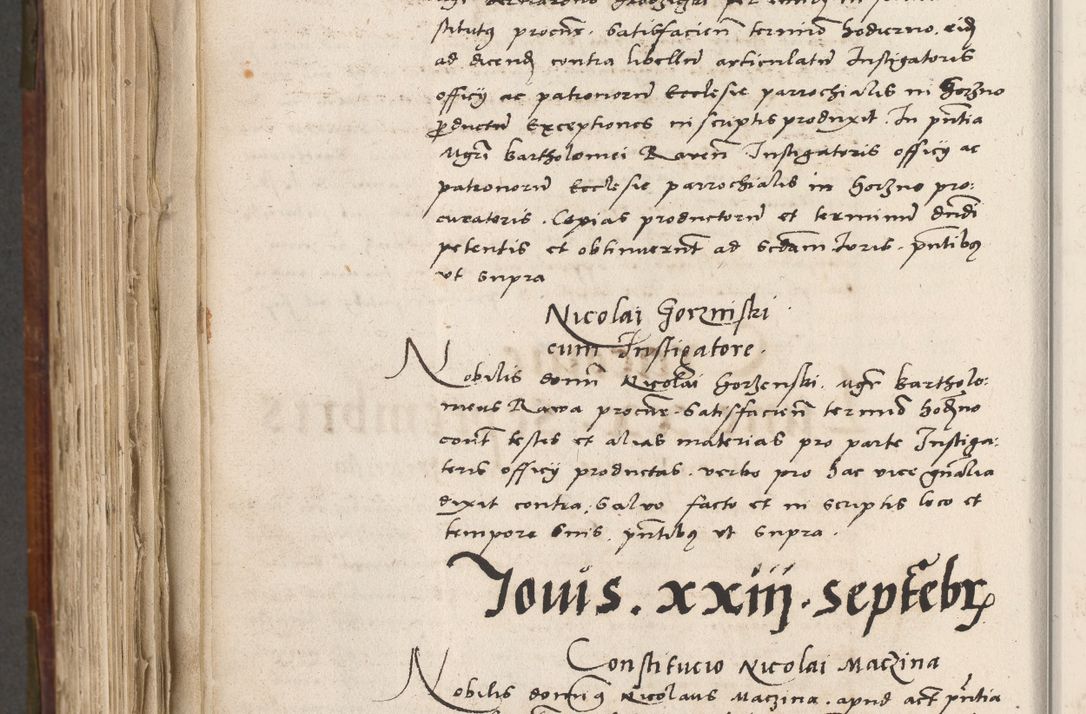 stitutꝰ procūr. Satisfacień terminō hodierno. eiđ
ad dicenđ contra libellū articulatū Instigatoris
officij ac patronorū Ecclesie parrochialis in Gorzno
ꝓductū Exceptiones in scriptis produxit. In pn̄tia
Mgri Bartholomei Raven̄ Instigatoris officij ac
patronorū Ecclesie parrochialis in Gorzno pro:
curatoris. Copias productorū et terminū dn̄di
petentis et obtinuerūt ad sc̄dam Iuris. pn̄tibꝰ
vt supra
Nicolai Gorzniski
cum Instigatore.
Nobilis domī Nicolai Gorzenski. Mgr Bartholo:
meus Rawa procūr Satisfacień terminō hođno
cont̄ testes et alias materias pro parte Instiga:
toris officij productas. verbo pro hac vice gn̄alia
dixit contra. Salvo facto et in scriptis loco et
tempore suis. pn̄tibꝰ vt supra.
Iouis. xxiij. septēbrꝭ
Constitucio Nicolai Maczina
Nobilis dominꝰ Nicolaus Maczina. apud act̄ pn̄tia